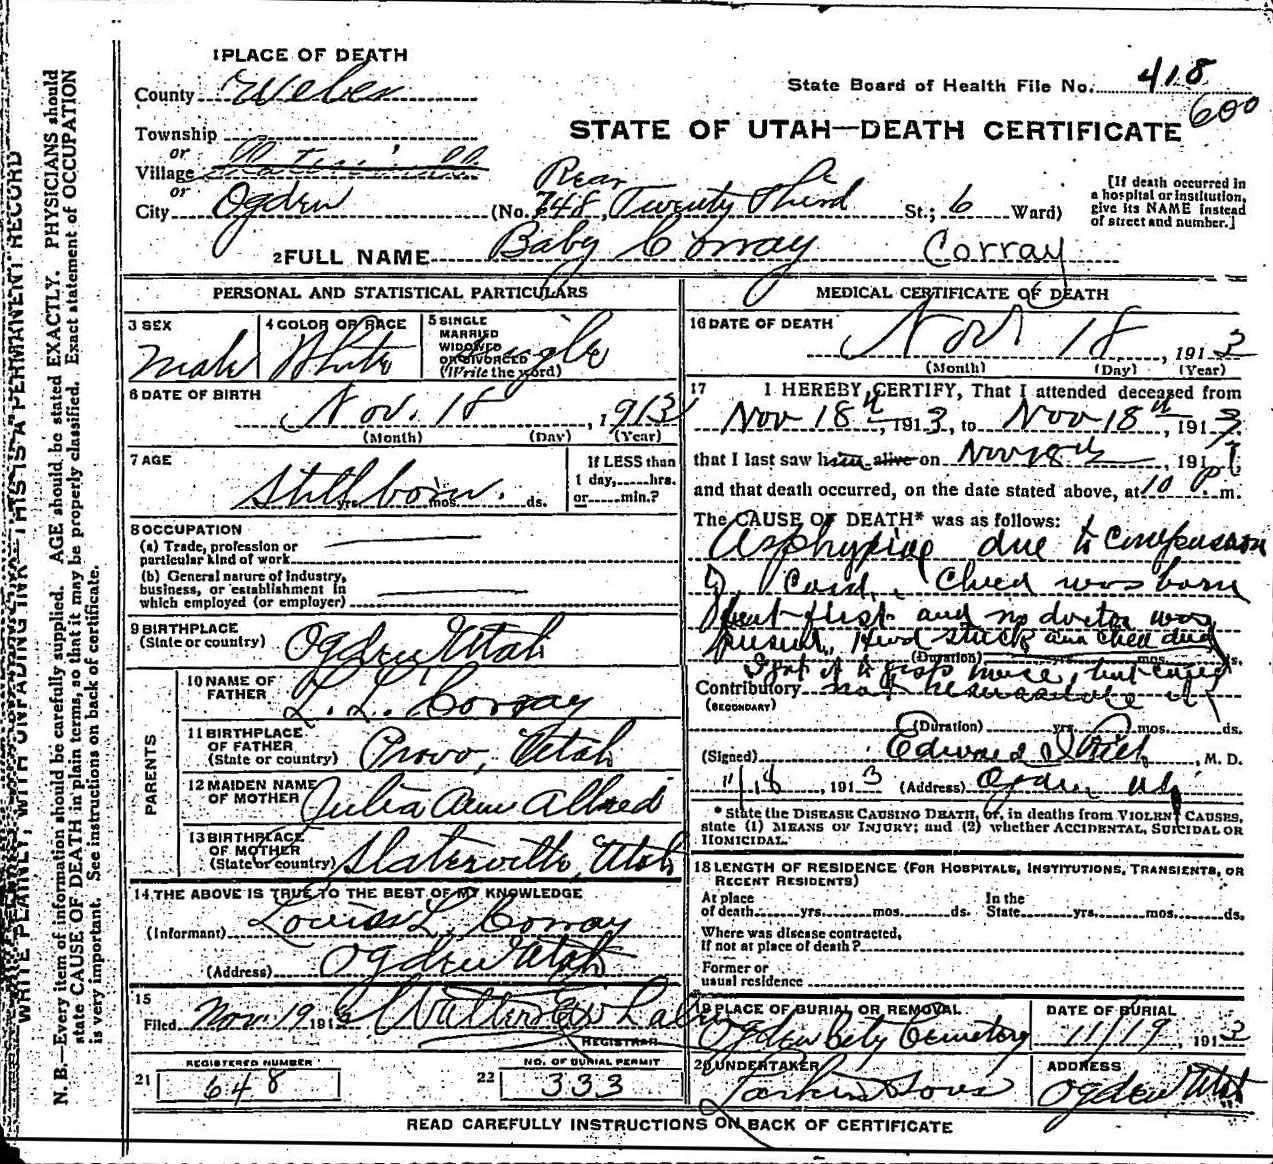 WRITE PLAINLY, WITH UNFADING INK—THIS IS A PERMANENT RECORD
N. B.—Every item of information should be carefully supplied. AGE should be stated EXACTLY. PHYSICIANS should
state CAUSE OF DEATH in plain terms, so that it may be properly classified. Exact statement of OCCUPATION
is very important. See instructions on back of certificate.
1 PLACE OF DEATH
County Weber
State Board of Health File No. 418
600
STATE OF UTAH—DEATH CERTIFICATE
Township
or
Village
or
City Ogden
Rear
(No. 748, Twenty Third St.; 6 Ward)
[If death occurred in
a hospital or institution,
give its NAME instead
of street and number.]
2 FULL NAME Baby Corray Corray
PERSONAL AND STATISTICAL PARTICULARS
3 SEX
Male
4 COLOR OR RACE
White
5 SINGLE
MARRIED
WIDOWED
OR DIVORCED
(Write the word)
Single
6 DATE OF BIRTH
Nov. 18, 1913
(Month) (Day) (Year)
7 AGE
Stillborn.
yrs. mos. ds.
If LESS than
1 day, hrs.
or min.?
8 OCCUPATION
(a) Trade, profession or
particular kind of work
(b) General nature of industry,
business, or establishment in
which employed (or employer)
9 BIRTHPLACE
(State or country)
Ogden Utah
PARENTS
10 NAME OF
FATHER
L. L. Corray
11 BIRTHPLACE
OF FATHER
(State or country)
Provo, Utah
12 MAIDEN NAME
OF MOTHER
Julia Ann Allred
13 BIRTHPLACE
OF MOTHER
(State or country)
Slaterville, Utah
14 THE ABOVE IS TRUE TO THE BEST OF MY KNOWLEDGE
(Informant) Louis L. Corray
(Address) Ogden Utah
15
Filed Nov. 19 1913
REGISTRAR
REGISTERED NUMBER
21 648
NO. OF BURIAL PERMIT
22 333
MEDICAL CERTIFICATE OF DEATH
16 DATE OF DEATH
Nov 18, 1913
(Month) (Day) (Year)
17 I HEREBY CERTIFY, That I attended deceased from
Nov 18th, 1913, to Nov 18th, 1913
that I last saw him alive on Nov 18th, 191
and that death occurred, on the date stated above, at 10 P. m.
The CAUSE OF DEATH* was as follows:
Asphyxiae due to compression
of cord. Child was born
feet first and no doctor was
present. Head stuck and child died
(Duration) yrs. mos. ds.
I got it to gasp twice, but could
Contributory not resuscitate it
(SECONDARY)
(Duration) yrs. mos. ds.
(Signed) Edward I Rich, M. D.
11/18, 1913 (Address) Ogden Ut
* State the DISEASE CAUSING DEATH, or, in deaths from VIOLENT CAUSES,
state (1) MEANS OF INJURY; and (2) whether ACCIDENTAL, SUICIDAL OR
HOMICIDAL.
18 LENGTH OF RESIDENCE (FOR HOSPITALS, INSTITUTIONS, TRANSIENTS, OR
RECENT RESIDENTS)
At place
of death yrs. mos. ds.
In the
State yrs. mos. ds.
Where was disease contracted,
If not at place of death?
Former or
usual residence
19 PLACE OF BURIAL OR REMOVAL
Ogden City Cemetery
DATE OF BURIAL
11/19, 1913
20 UNDERTAKER
Larkin Sons
ADDRESS
Ogden Utah
READ CAREFULLY INSTRUCTIONS ON BACK OF CERTIFICATE